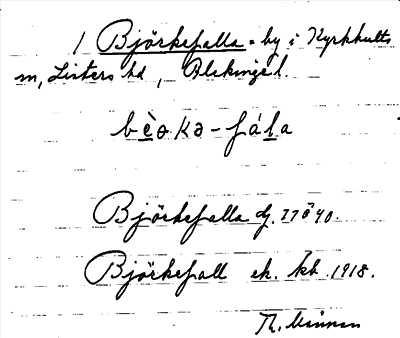 / Björkefalla = by i Kyrkhults
sn, Listers hd, Blekinge l.
bèəkə-fála
Björkefalla dj. 77ö40.
Björkefall ek. kb. 1918.
Th.